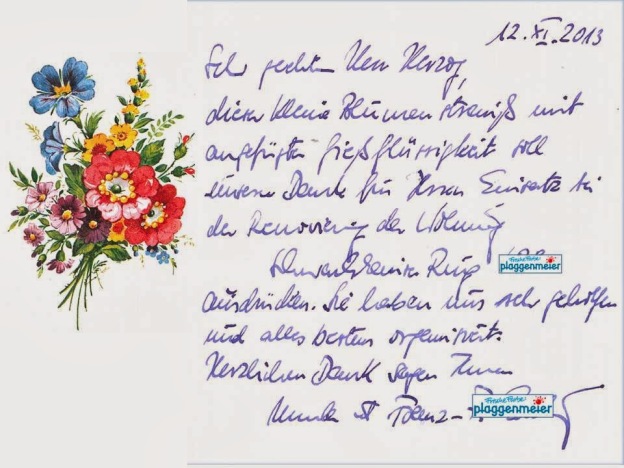 12.XI.2013
Sehr geehrter Herr Herzog,
dieser kleine Blumenstrauß mit
angefügter Gießflüssigkeit soll
unseren Dank für Ihren Einsatz bei
der Renovierung der Wohnung
Ring
Frische Farbe
plaggenmeier
ausdrücken. Sie haben uns sehr geholfen
und alles bestens organisiert.
Herzlichen Dank sagen Ihnen
Frische Farbe
plaggenmeier